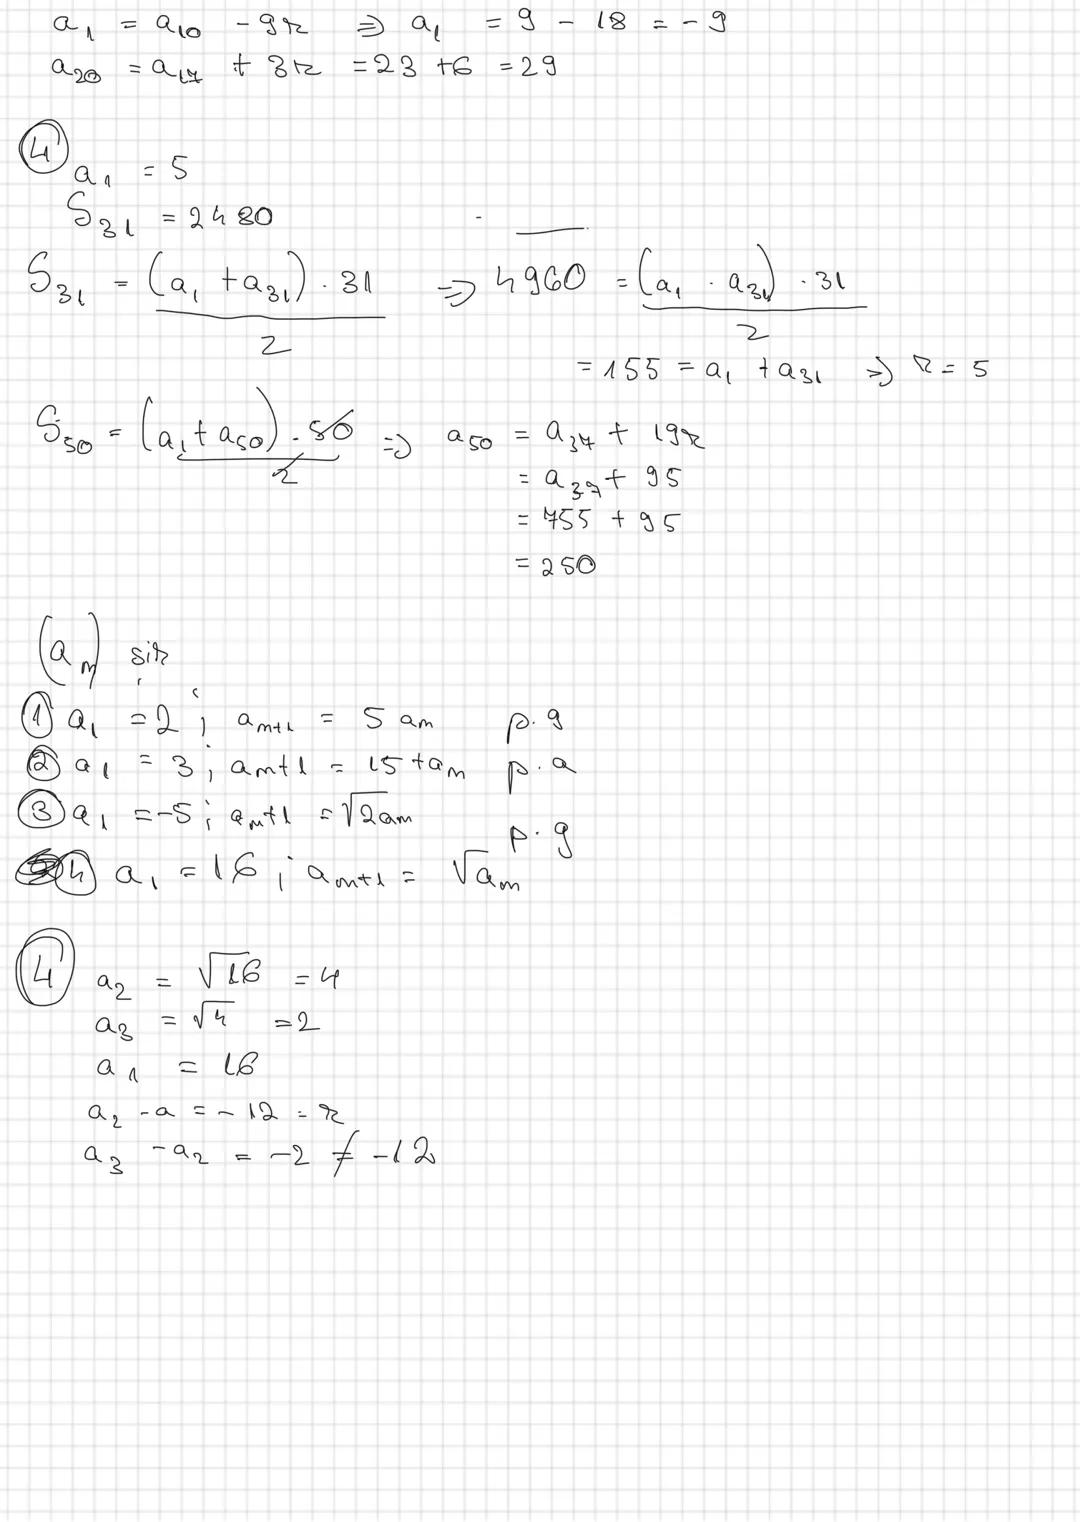 a₁ = a₁₀ - 9r ⇒ a₁ = 9 - 18 = -9
a₂₀ = a₁₇ + 3r = 23 + 6 = 29
④
a₁ = 5
S₃₁ = 2480
S₃₁ = (a₁ + a₃₁) · 31 / 2 ⇒ 4960 = (a₁ · a₃₁) · 31 / 2
= 155 = a₁ + a₃₁ ⇒ r = 5
S₅₀ = (a₁ + a₅₀) · 50 / 2 ⇒ a₅₀ = a₃₇ + 19r
= a₃₇ + 95
= 755 + 95
= 250
(aₙ) șir
① a₁ = 2 ; aₙ₊₁ = 5 aₙ p.g
② a₁ = 3 ; aₙ₊₁ = 15 + aₙ p.a
③ a₁ = -5 ; aₙ₊₁ = √2aₙ p.g
④ a₁ = 16 ; aₙ₊₁ = √aₙ
④
a₂ = √16 = 4
a₃ = √4 = 2
a₁ = 16
a₂ - a = -12 = r
a₃ - a₂ = -2 ≠ -12